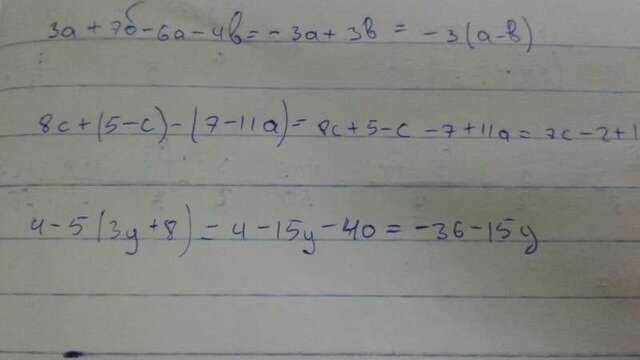 3a + 7б - 6a - 4в = - 3a + 3в = - 3(a-в)
8c + (5-c) - (7-11a) = 8c + 5 - c - 7 + 11a = 7c - 2 + 1
4 - 5(3y + 8) = 4 - 15y - 40 = -36 - 15y